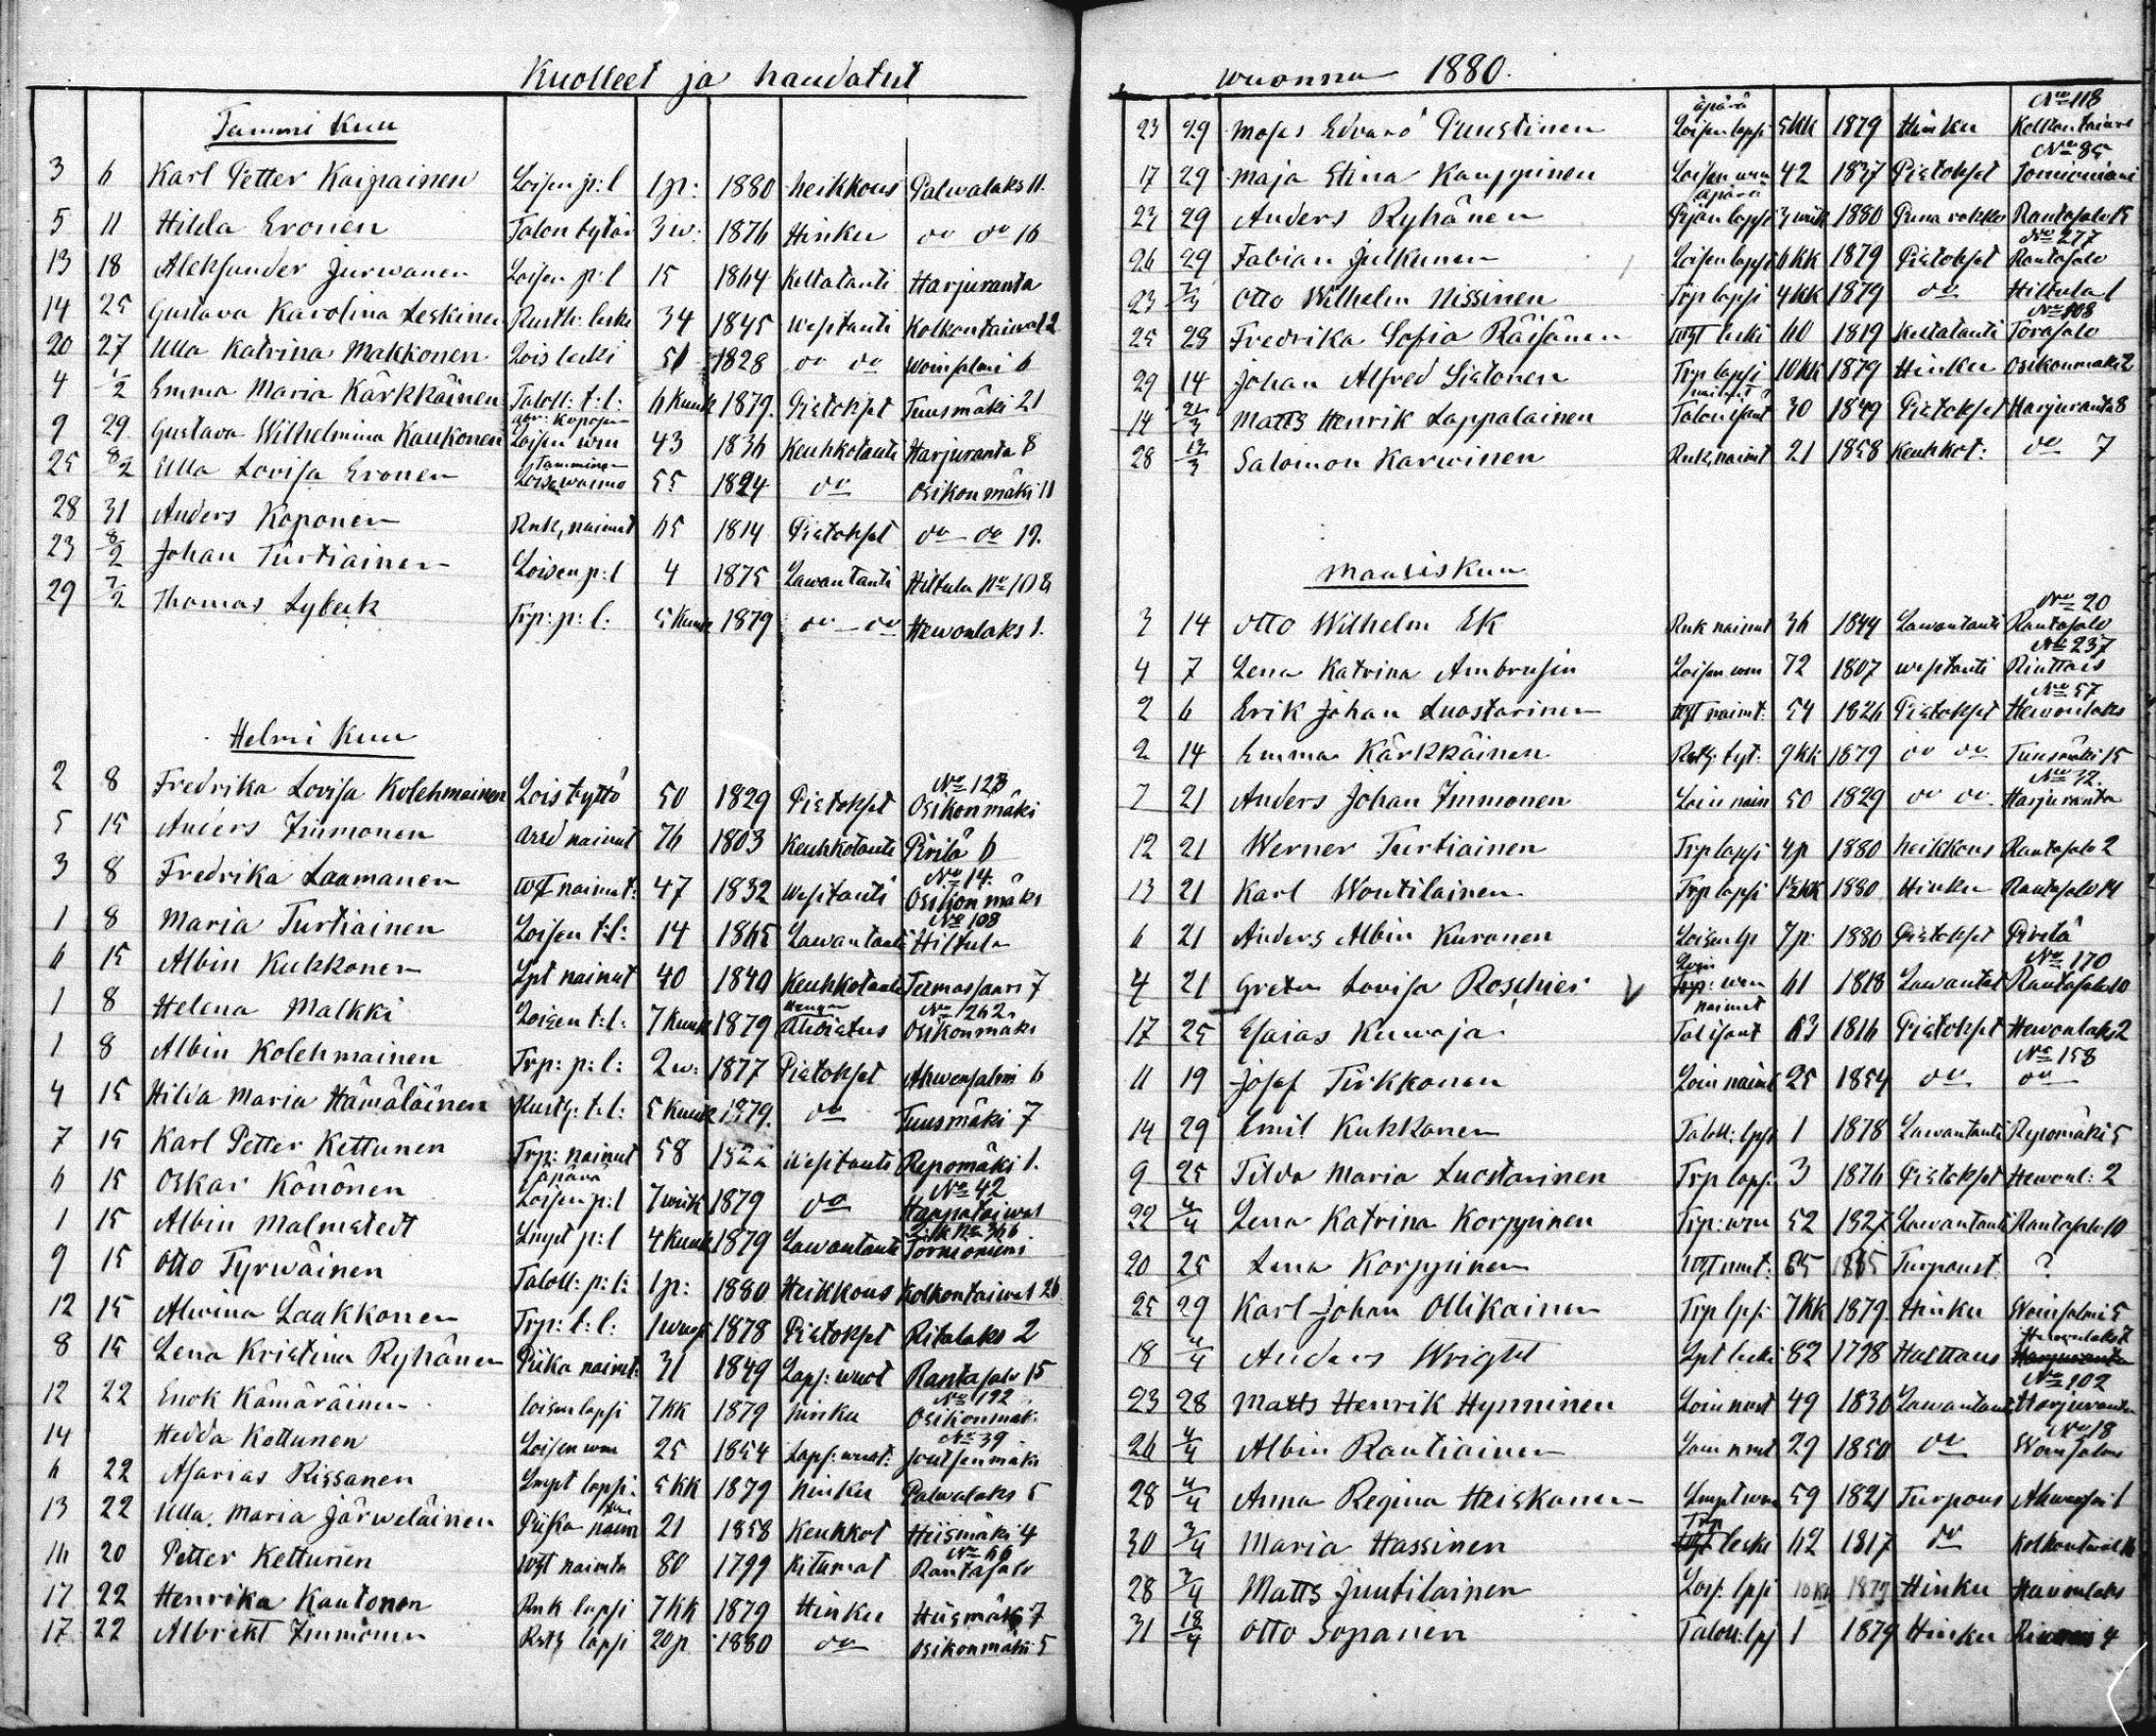 Kuolleet ja haudatut
Tammi Kuu
3 6 Karl Petter Kaipainen Loisen p:l 1p: 1880 heikkous Palwalaks 11.
5 11 Hilda Eronen Talon tytär 3w: 1876 Hinku do do 16
13 18 Aleksander Jurwanen Loisen p:l 15 1864 Keltatauti Harjuranta
14 25 Gustava Karolina Leskinen Rusth: leski 34 1845 wesitauti Kolkontaiwal 2
20 27 Ulla Katrina Makkonen Lois leski 51 1828 do do Woinsalmi 6
4 1/2 Emma Maria Kärkkäinen Taloll: t:l: 6 Kuuk 1879. Pistokset Tuusmäki 21
9 29 Gustava Wilhelmina Kaukonen Loisen wm 43 1836 Keuhkotauti Harjuranta 8
25 8/2 Ulla Lovisa Eronen Loise waimo 55 1824 do Osikonmäki 11
28 31 Anders Koponen Rnk, nainut 65 1814 Pistokset do do 19.
23 8/2 Johan Turtiainen Loisen p:l 4 1875 Lawantauti Hiltula No 108
29 7/2 Thomas Lybeck Trp: p: l: 5 Kuuk 1879 do do Hewonlaks 1.
Helmi Kuu
2 8 Fredrika Lovisa Kolehmainen Lois tyttö 50 1829 Pistokset No 123 Osikonmäki
5 15 Anders Immonen nainut 76 1803 Keuhkotauti Pirilä 6
3 8 Fredrika Laamanen nainut: 47 1832 Wesitauti No 14. Osikonmäki
1 8 Maria Turtiainen Loisen t:l: 14 1865 Lawantauti No 108 Hiltula
6 15 Albin Kukkonen Lpt nainut 40 1840 Keuhkotauti Telmassaari 7
1 8 Helena Malkki Loisen t:l: 7 Kuuk 1879 Ahdistus No 262. Osikonmäki
1 8 Albin Kolehmainen Trp: p: l: 2w: 1877 Pistokset Ahwensalmi 6
4 15 Hilda Maria Hämäläinen Rustg: t:l: 5 Kuuk 1879. do Tuusmäki 7
7 15 Karl Petter Kettunen Trp: nainut 58 1822 Wesitauti Repomäki 1.
6 15 Oskar Könönen äpärä Loisen p:l 7 wiik 1879 do No 42 Haapataiwal
1 15 Albin Malmstedt Lmpt p:l 4 Kuuk 1879 Lawantauti Torneoniemi
9 15 Otto Tyrwäinen Taloll: p: l: 1p: 1880 Heikkous Kolkontaiwal 26
12 15 Alwina Laukkonen Trp: t: l: 1 1878 Pistokset Ritalaks 2
8 15 Lena Kristina Ryhänen Piika nainut: 31 1849 Laps: wuot Rantasalo 15
12 22 Enok Kämäräinen loisen lapsi 7kk 1879 hinku No 192 Osikonmäk:
14 Hedda Kettunen Loisen wm 25 1854 Laps: wuot: No 39 Joutsenmäki
6 22 Asarias Rissanen Lmpt lapsi. 5kk 1879 hinku Palwalaks 5
13 22 Ulla Maria Järweläinen Piika naim 21 1858 Keuhkot Hiismäki 4
16 20 Petter Kettunen nainutn 80 1799 Kitumat No 66 Rantasalo
17 22 Henrika Kautonen Rnk lapsi 7kk 1879 Hinku Hiismäki 7
17 22 Albrekt Immonen Rstg lapsi 20p 1880 do Osikonmäki 5
wuonna 1880.
23 29 Moses Edvard Puustinen äpärä Loisen lapsi 5kk 1879 Hinku No 118 Kolkontaiwal
17 29 Maja Stina Kauppinen Loisen wm 42 1837 Pistokset No 85 Torneoniemi
23 29 Anders Ryhänen äpärä Piian lapsi 3 wiik 1880 Punarokko Rantasalo 15
26 29 Fabian Julkunen Loisen lapsi 6kk 1879 Pistokset No 277 Rantasalo
23 7/3 Otto Wilhelm Nissinen Trp lapsi 4kk 1879 do Hiltula 1
25 28 Fredrika Sofia Räisänen leski 60 1819 Keltatauti No 108 Torasalo
29 14 Johan Alfred Sistonen Trp lapsi 10kk 1879 Hinku Osikonmäki 2
14 21/3 Matts Henrik Lappalainen nainut Talon isänt 30 1849 Pistokset Harjuranta 8
28 13/3 Salomon Karwinen Rnk, nainut 21 1858 Keuhkot: do 7
Maaliskuu
3 14 Otto Wilhelm Ek Rnk nainut 36 1844 Lawantauti No 20 Rantasalo
4 7 Lena Katrina Ambrusin Loisen wm 72 1807 wesitauti No 237
2 6 Erik Johan Luostarinen nainut: 54 1826 Pistokset No 57 Hewonlaks
2 14 Emma Kärkkäinen Rstg: tyt: 9kk 1879 do do Tuusmäki 15
7 21 Anders Johan Immonen Lois nain 50 1829 do do No 32. Harjuranta
12 21 Werner Turtiainen Trp lapsi 4p 1880 heikkous Rantasalo 2
13 21 Karl Woutilainen Trp lapsi 1½kk 1880 Hinku Rantasalo 14
6 21 Anders Albin Kuronen Loisen lp 7p 1880 Pistokset Pirilä
4 21 Greta Lovisa Roschier Lois wm 61 1818 Lawantat No 170 Rantasalo 10
17 25 Esaias Kuwaja nainut Tal isänt 63 1816 Pistokset Hewonlaks 2
11 19 Josef Tirkkonen Lois nainut 25 1854 do No 158 do
14 29 Emil Kukkonen Taloll: lpsi 1 1878 Lawantauti Repomäki 5
9 25 Tilda Maria Luostarinen Trp laps: 3 1876 Pistokset Hewonl: 2
22 4/4 Lena Katrina Korppinen Trp: wm 52 1827 Lawantauti Rantasalo 10
20 25 Lena Korppinen Turpoust. ?
25 29 Karl Johan Ollikainen Trp lpsi 7kk 1879 Hinku Woinsalmi 5
18 4/4 Anders Wright Lpt leski 82 1798 Halttaus Hewonlaks 7
23 28 Matts Henrik Hynninen Lois nnut 49 1830 Lawantauti No 102 Harjuranta
26 4/4 Albin Rautiainen Lois nnut 29 1850 do No 18 Woinsalmi
28 4/4 Anna Regina Heiskanen Lmpt wm 59 1821 Turpous Ahwensal 1
30 3/4 Maria Hassinen Trp leski 62 1817 do Kolkontaiwal 16
28 3/4 Matts Juutilainen Lois: lpsi 10kk 1879 Hinku Hewonlaks
31 18/4 Otto Sopanen Taloll: lps 1 1879 Hinku 4